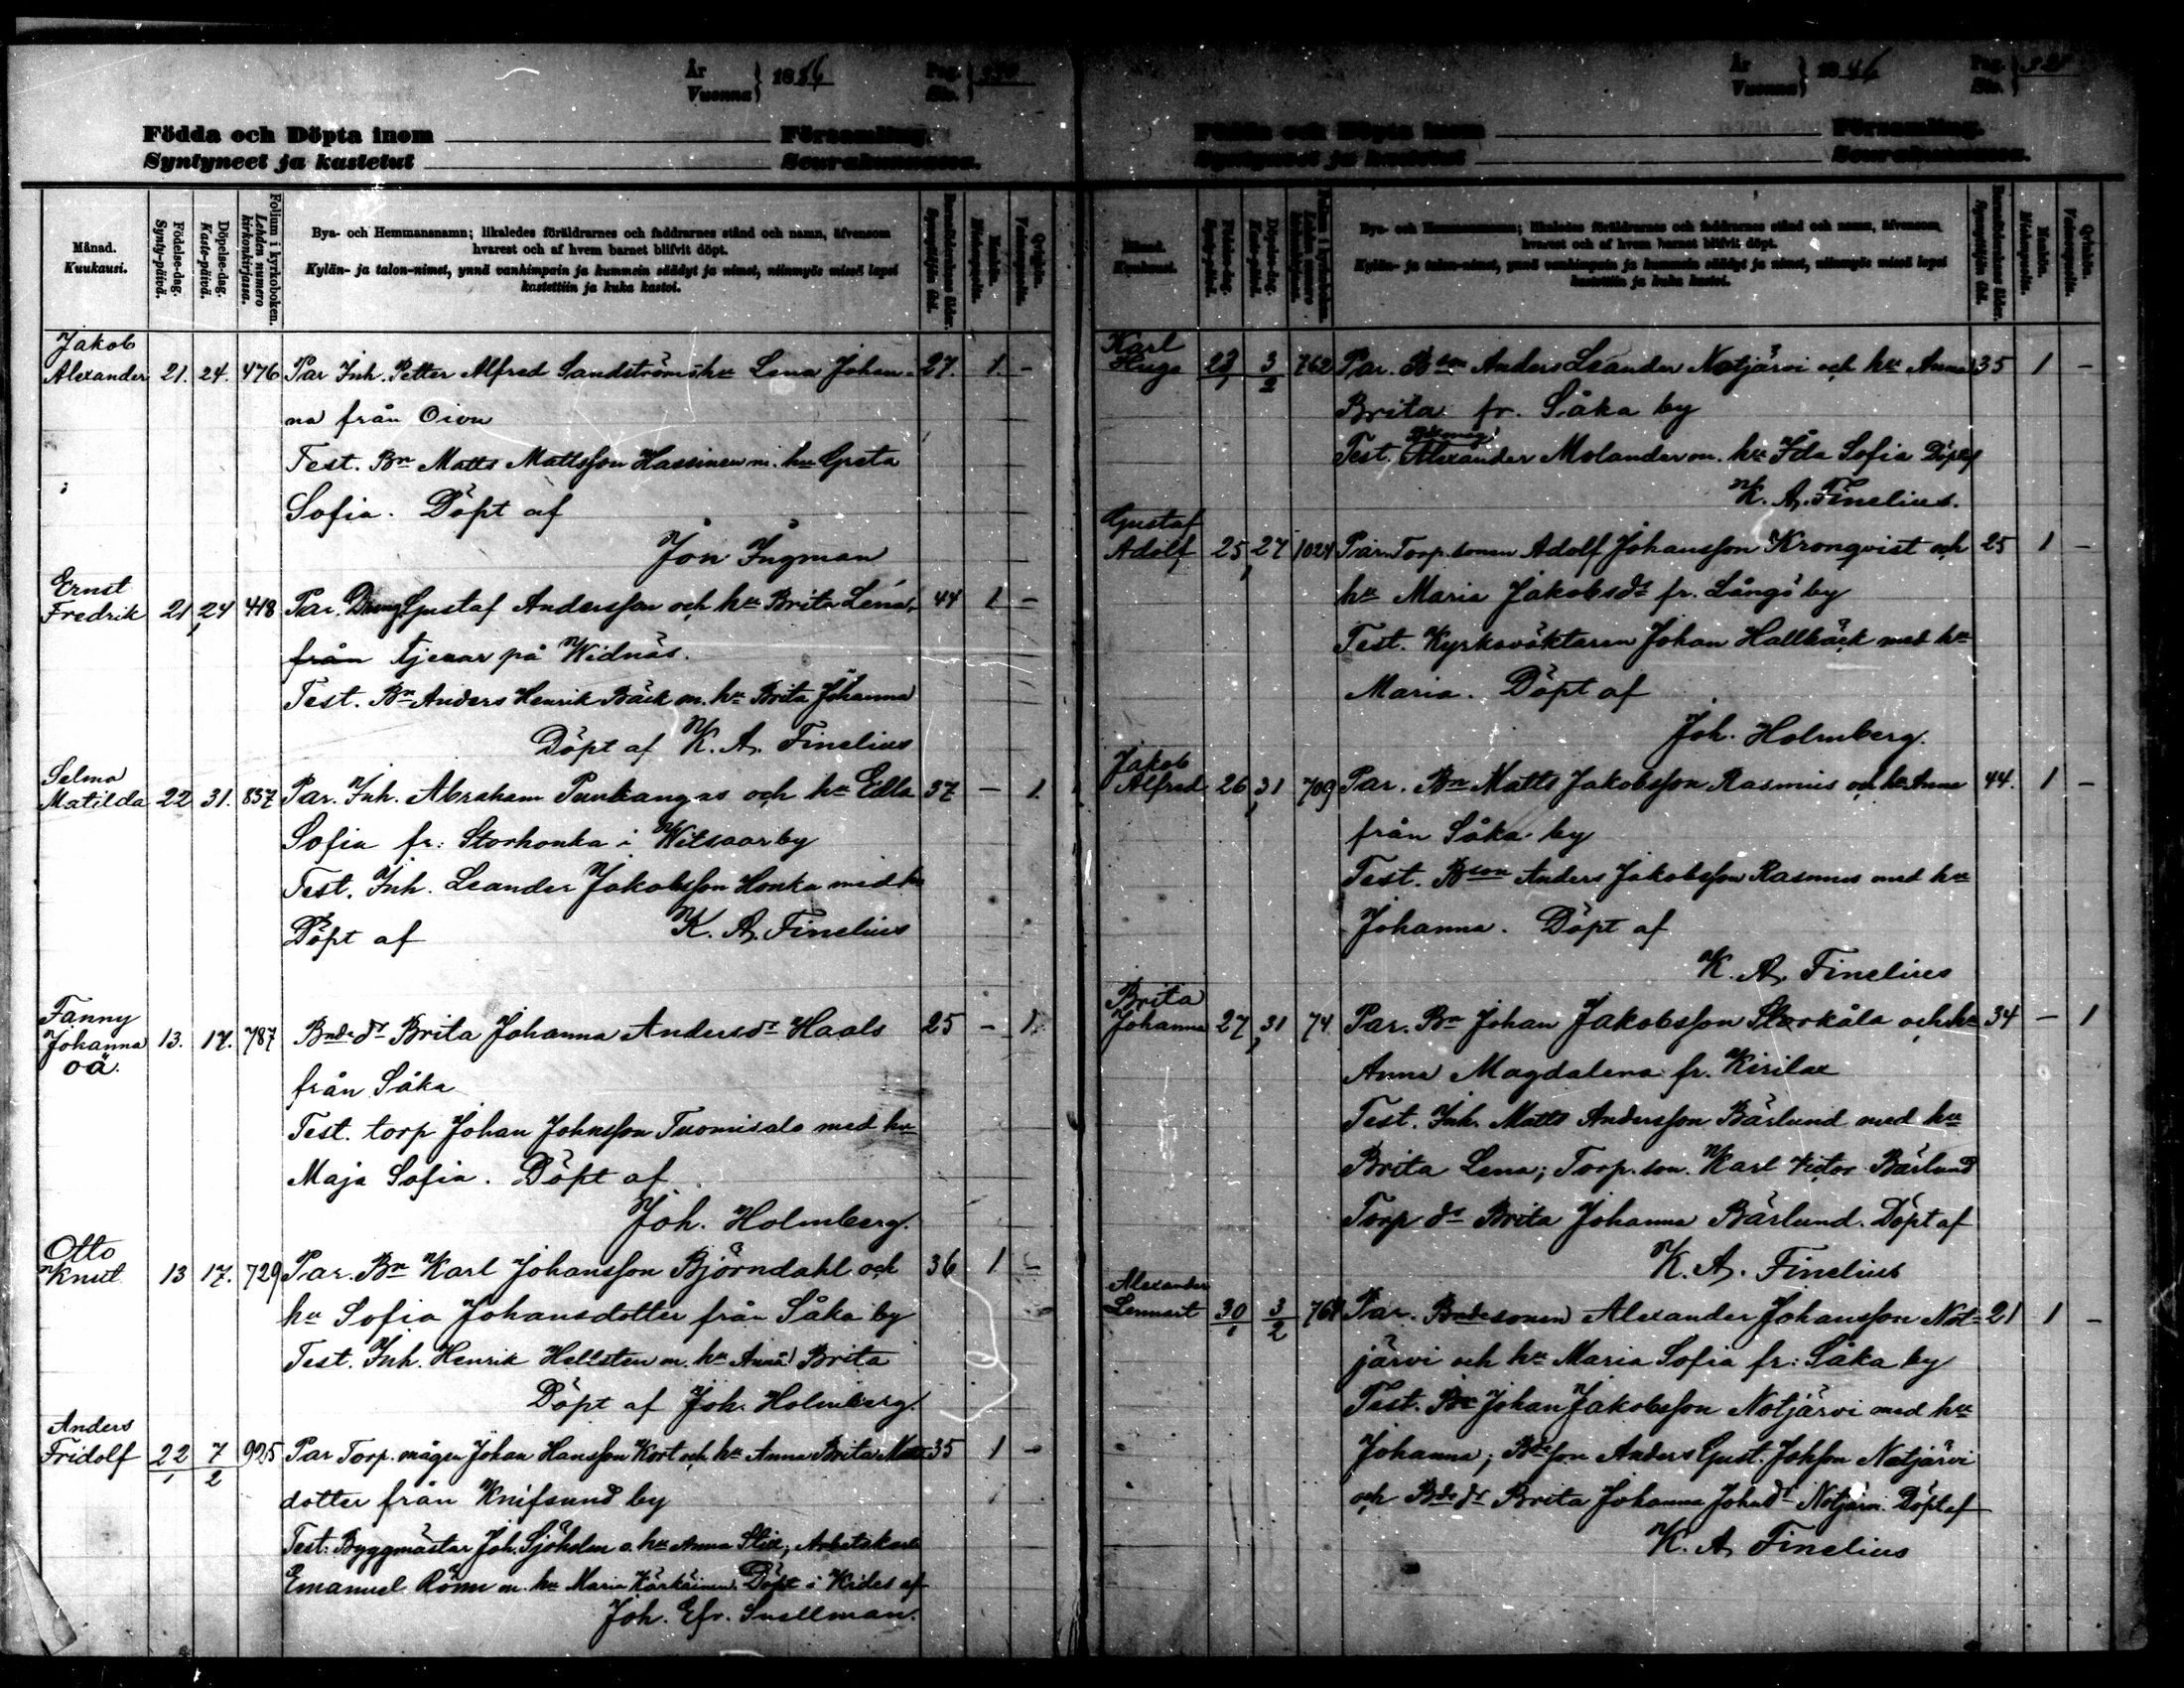 År
Vuonna } 1886
Pag.
Siv.
Födda och Döpta inom Församling.
Syntyneet ja kastetut Seurakunnassa.
Månad.
Kuukausi.
Födelse-dag.
Synty-päivä.
Döpelse-dag.
Kaste-päivä.
Folium i kyrkoboken.
Lehden numero kirkonkirjassa.
Bya- och Hemmansnamn; likaledes föräldrarnes och faddrarnes stånd och namn, äfvensom
hvarest och af hvem barnet blifvit döpt.
Kylän- ja talon-nimet, ynnä vanhimpain ja kummein säädyt ja nimet, niinmyös missä lapsi
kastettiin ja kuka kastoi.
Barnaföderskans ålder.
Synnyttäjän ikä.
Mankön.
Miehenpuolta.
Qvinkön.
Vaimonpuolta.
Jakob
Alexander 21. 24. 476 Par Inh. Petter Alfred Sandström o hu Lena Johan- 27. 1. -
na från Oivu
Test. Bn Matts Mattsson Hassinen m. hu Greta
Sofia. Döpt af
Jon Ingman
Ernst
Fredrik 21 24 418 Par. Dreng Gustaf Andersson och hu Brita Lena, 44 1 -
från tjenar på Widnäs.
Test. Bn Anders Henrik Bäck m. hu Brita Johanna
Döpt af K. A. Finelius
Selma
Matilda 22 31. 837 Par. Inh. Abraham Punkangas och hu Edla 37 - 1.
Sofia fr: Storhonka i Witsaarby
Test. Inh. Leander Jakobsson Honka med hu
Döpt af K. A. Finelius
Fanny
Johanna 13. 17. 787 Bnde dr Brita Johanna Andersdr Haals 25 - 1.
oä.
från Såka
Test. torp Johan Johnsson Tuomisalo med hu
Maja Sofia. Döpt af
Joh. Holmberg.
Otto
Knut 13 17. 729 Par. Bn Karl Johansson Björndahl och 36 1 -
hu Sofia Johansdotter från Såka by
Test. Inh. Henrik Hellsten m. hu Anna Brita
Döpt af Joh. Holmberg.
Anders
Fridolf 22/1 7/2 925 Par Torp. mågen Johan Hansson Kort och hu Anna Brita Matts 35 1 -
dotter från Knifsund by
Test. Byggmästar Joh. Sjöholm o. hu Anna Stix, Arbetskarl
Emanuel Rönn m. hu Maria Kärkäinen. Döpt i Kides af
Joh. Efr. Snellman.
År
Vuonna } 1886
Pag.
Siv. 321
Födda och Döpta inom Församling.
Syntyneet ja kastetut Seurakunnassa.
Månad.
Kuukausi.
Födelse-dag.
Synty-päivä.
Döpelse-dag.
Kaste-päivä.
Folium i kyrkoboken.
Lehden numero kirkonkirjassa.
Bya- och Hemmansnamn; likaledes föräldrarnes och faddrarnes stånd och namn, äfvensom
hvarest och af hvem barnet blifvit döpt.
Kylän- ja talon-nimet, ynnä vanhimpain ja kummein säädyt ja nimet, niinmyös missä lapsi
kastettiin ja kuka kastoi.
Barnaföderskans ålder.
Synnyttäjän ikä.
Mankön.
Miehenpuolta.
Qvinkön.
Vaimonpuolta.
Karl
Hugo 23/1 3/2 762 Par. Bson Anders Leander Notjärvi och hu Anna 35 1 -
Brita fr. Såka by
Test. Alexander Molander m. hu Ida Sofia Döpt af
K. A. Finelius.
Gustaf
Adolf 25 27 1024 Par. Torp. sonen Adolf Johansson Kronqvist och 25 1 -
hu Maria Jakobsdr fr. Långö by
Test. Kyrkväktaren Johan Hallbäck med hu
Maria. Döpt af
Joh. Holmberg.
Jakob
Alfred 26 31 709 Par. Bn Matts Jakobsson Rasmus och hu Anna 44. 1 -
från Såka by
Test. Bson Anders Jakobsson Rasmus med hu
Johanna. Döpt af
K. A. Finelius
Brita
Johanna 27 31 74 Par. Bn Johan Jakobsson Storkåla och hu 34 - 1
Anna Magdalena fr. Kirilax
Test. Inh. Matts Andersson Bärlund med hu
Brita Lena; Torp. son. Karl Victor Bärlund
Torp dr Brita Johanna Bärlund. Döpt af
K. A. Finelius
Alexander
Lennart 30/1 3/2 761 Par. Bndesonen Alexander Johansson Not- 21 1 -
järvi och hu Maria Sofia fr: Såka by
Test. Bn Johan Jakobsson Notjärvi med hu
Johanna; Bdeson Anders Gust. Johsson Notjärvi
och Bde dr Brita Johanna Johnsdr Notjärvi. Döpt af
K. A. Finelius